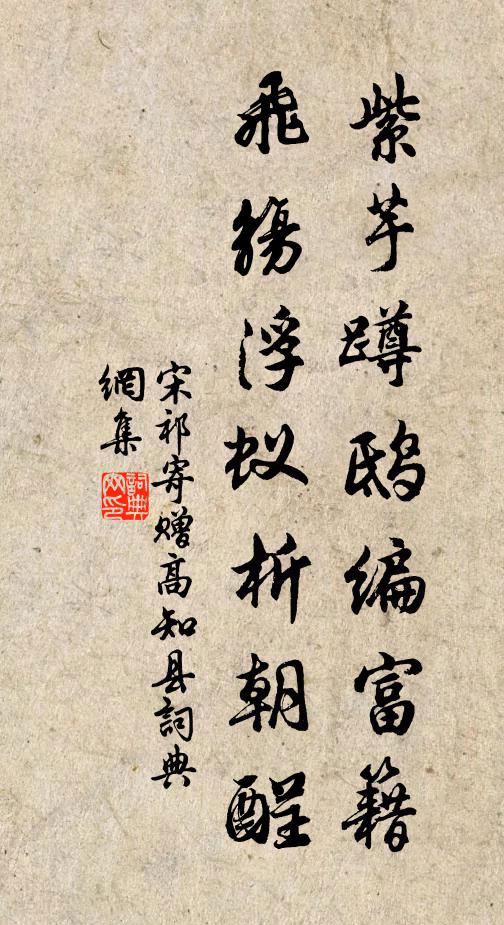 紫芋蹲鸱编富籍
飛觞浮蚁析朝酲
宋祁寄赠高知县詞典
網集
詞典
网印